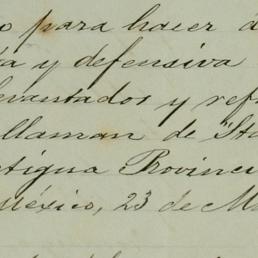 o para hacer
y defensiva
levantados y
llaman de
tigua Provinci
México, 23 de M